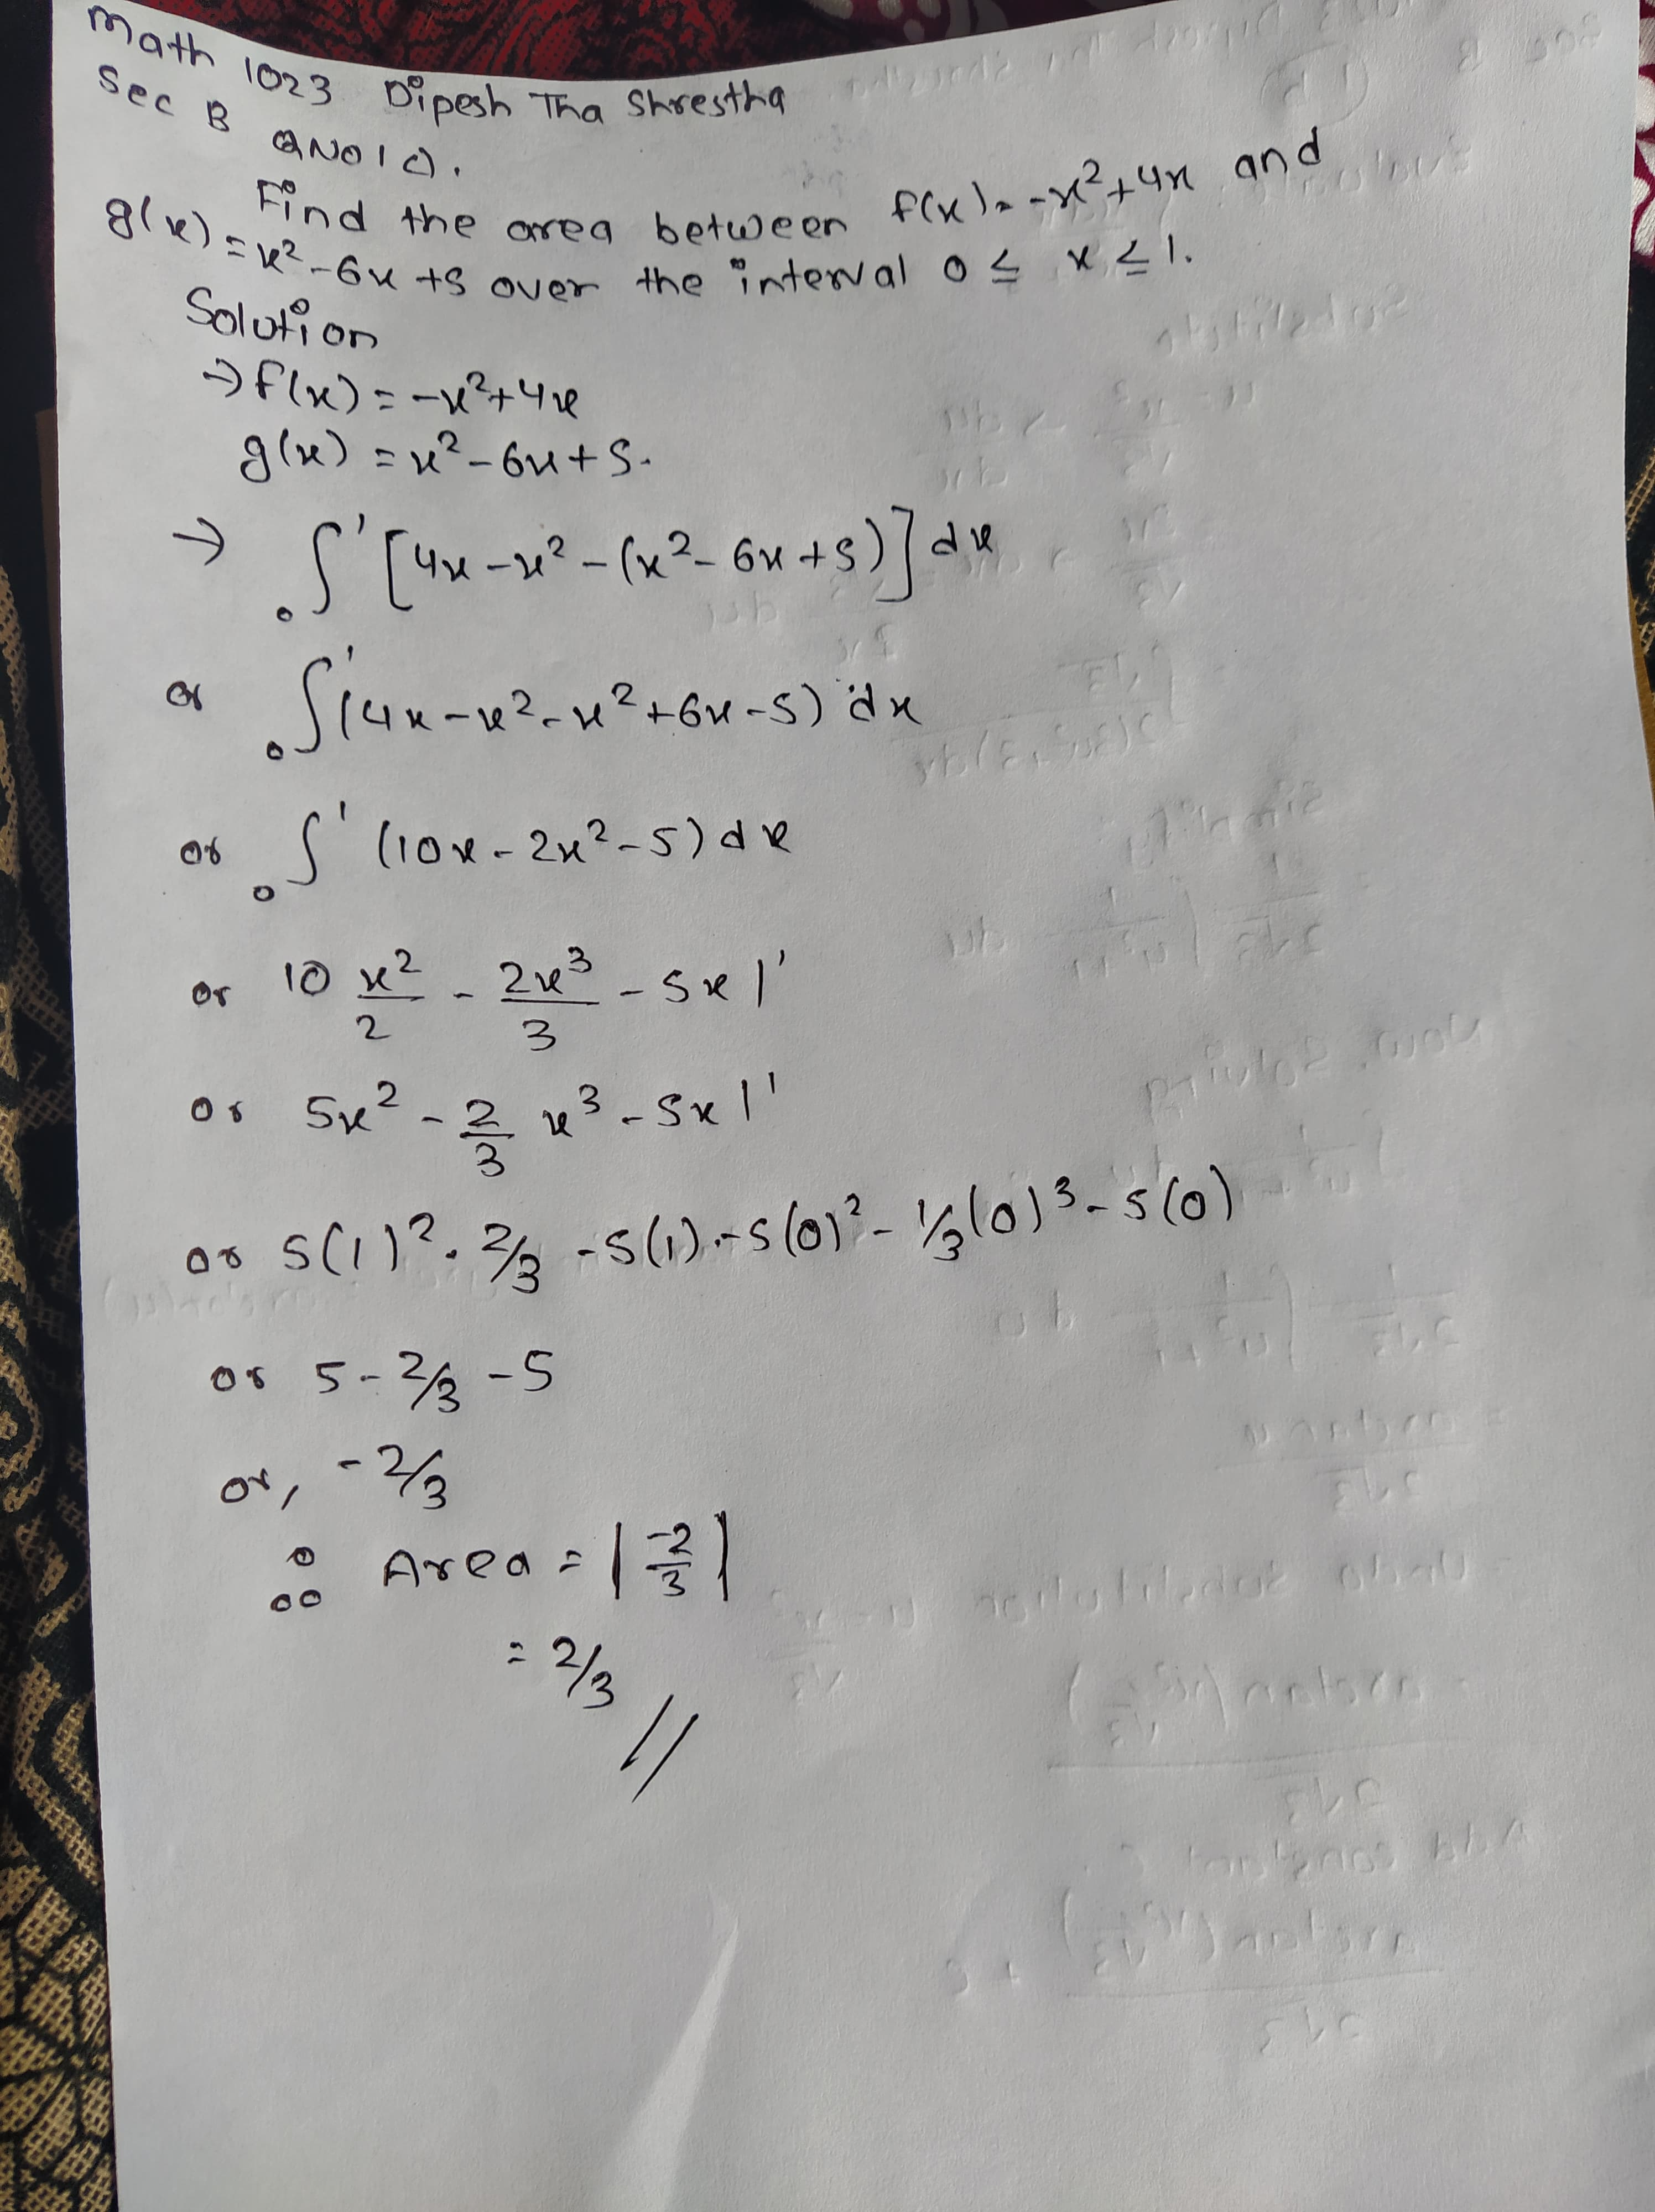 Math 1023 Dipesh Tha Shrestha
Sec B
QNO1 C).
Find the area between f(x) = -x²+4x and
g(x) = x²-6x+5 over the interval 0 ≤ x ≤ 1.
Solution
→ f(x) = -x²+4x
g(x) = x²-6x+5.
→ ₀∫¹ [4x-x²-(x²-6x+5)] dx
or ₀∫¹ (4x-x²-x²+6x-5) dx
or ₀∫¹ (10x-2x²-5) dx
or 10 x²/2 - 2x³/3 - 5x |¹
or 5x² - 2/3 x³ - 5x |¹
or 5(1)² - 2/3 - 5(1) - 5(0)² - 1/3(0)³ - 5(0)
or 5 - 2/3 - 5
or, -2/3
∴ Area = |-2/3|
= 2/3 //